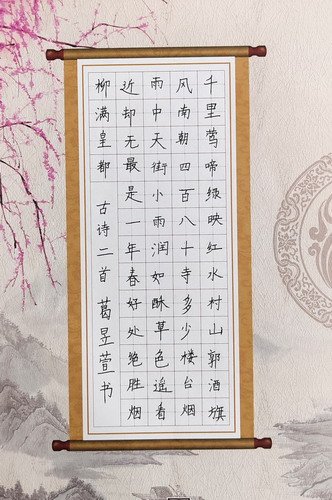 千里莺啼绿映红水村山郭酒旗
风南朝四百八十寺多少楼台烟
雨中天街小雨润如酥草色遥看
近却无最是一年春好处绝胜烟
柳满皇都 古诗二首 葛昱萱书